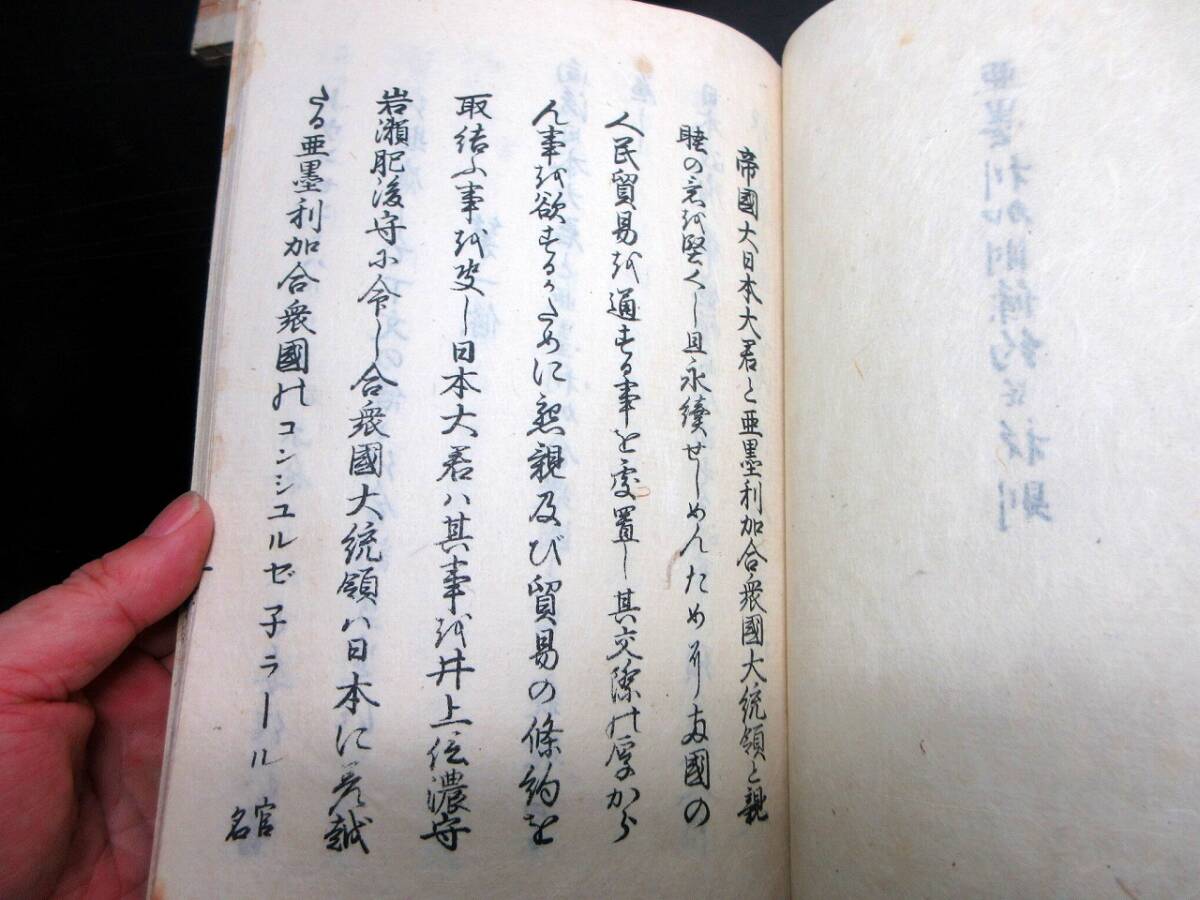 帝國大日本大君と亜墨利加合衆國大統領と親
睦の意を堅くし且永續せしめんため尓両國の
人民貿易を通する事を處置し其交際の厚から
ん事を欲するかために懇親及び貿易の條約を
取結ふ事を決し日本大君ハ其事を井上信濃守
岩瀬肥後守尓令し合衆國大統領ハ日本に差越
たる亜墨利加合衆國のコンシユルゼ子ラール官名